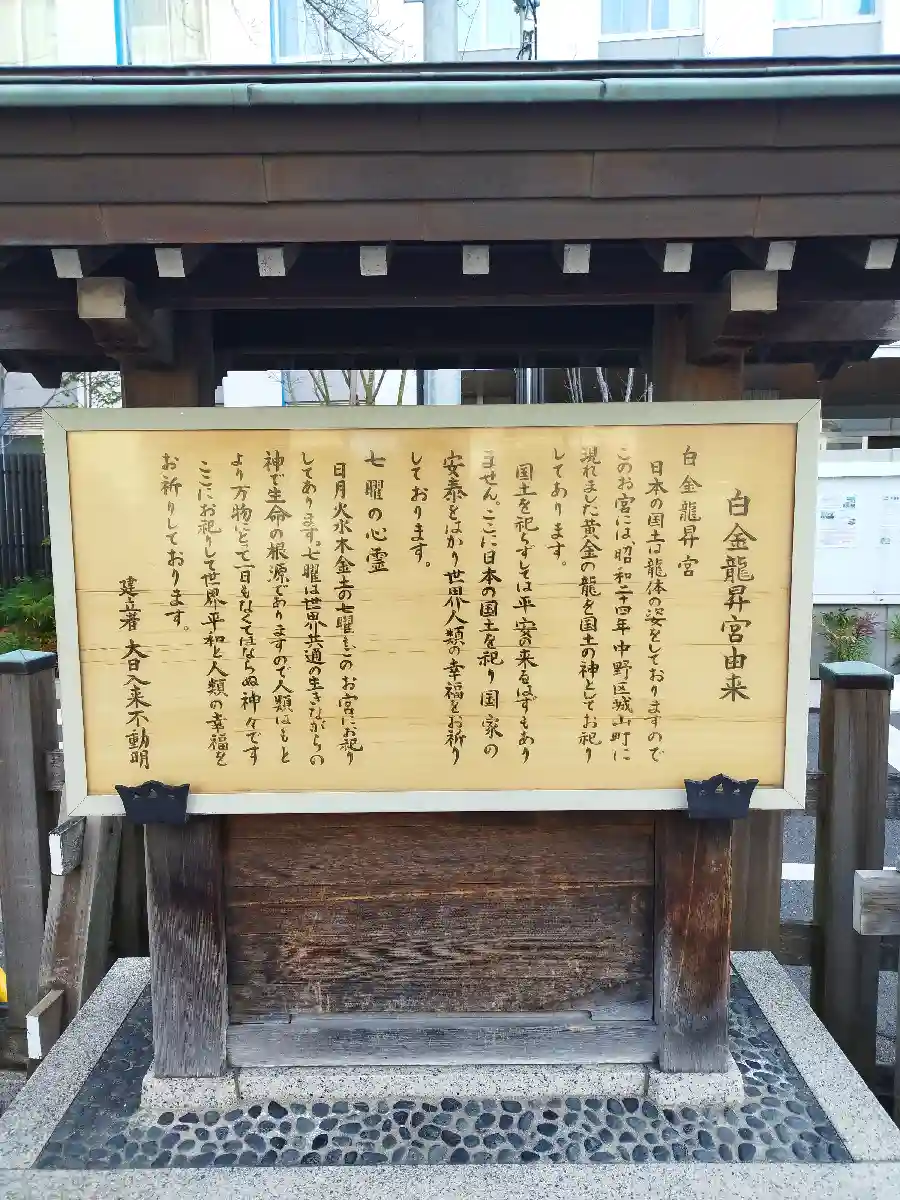 白金龍昇宮由来
白金龍昇宮
日本の国土は龍体の姿をしておりますので
このお宮には、昭和二四年中野区城山町に
現れました黄金の龍を国土の神としてお祀り
してあります。
国土を祀らずしては平安の来るはずもあり
ません。ここに日本の国土を祀り国家の
安泰をはかり世界人類の幸福をお祈り
しております。
七曜の心霊
日月火水木金土の七曜もこのお宮にお祀り
してあります。七曜は世界共通の生きながらの
神で生命の根源でありますので人類はもと
より万物にとて一日もなくてはならぬ神々です
ここにお祀りして世界平和と人類の幸福を
お祈りしております。
建立者 大日入来不動明